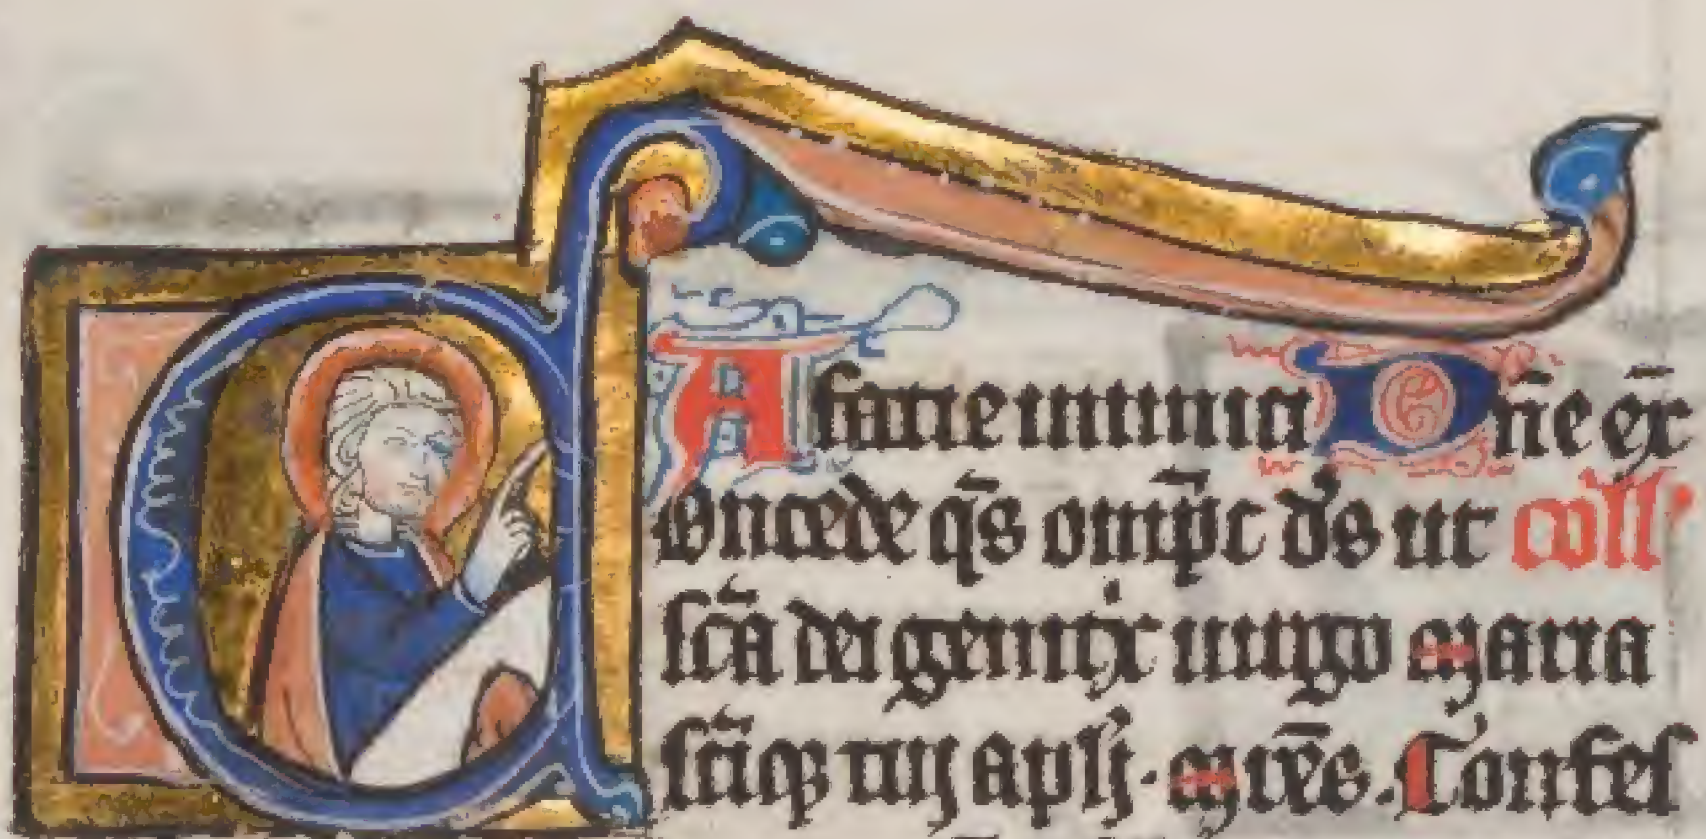 A facie inimici Dn̄e ex̄
Concede qs̄ omp̄s d̄s ut coll'
sc̄a dei genitⁱx uirgo Maria
sc̄iqꝫ tui apl̄i. Mr̄es. Confes